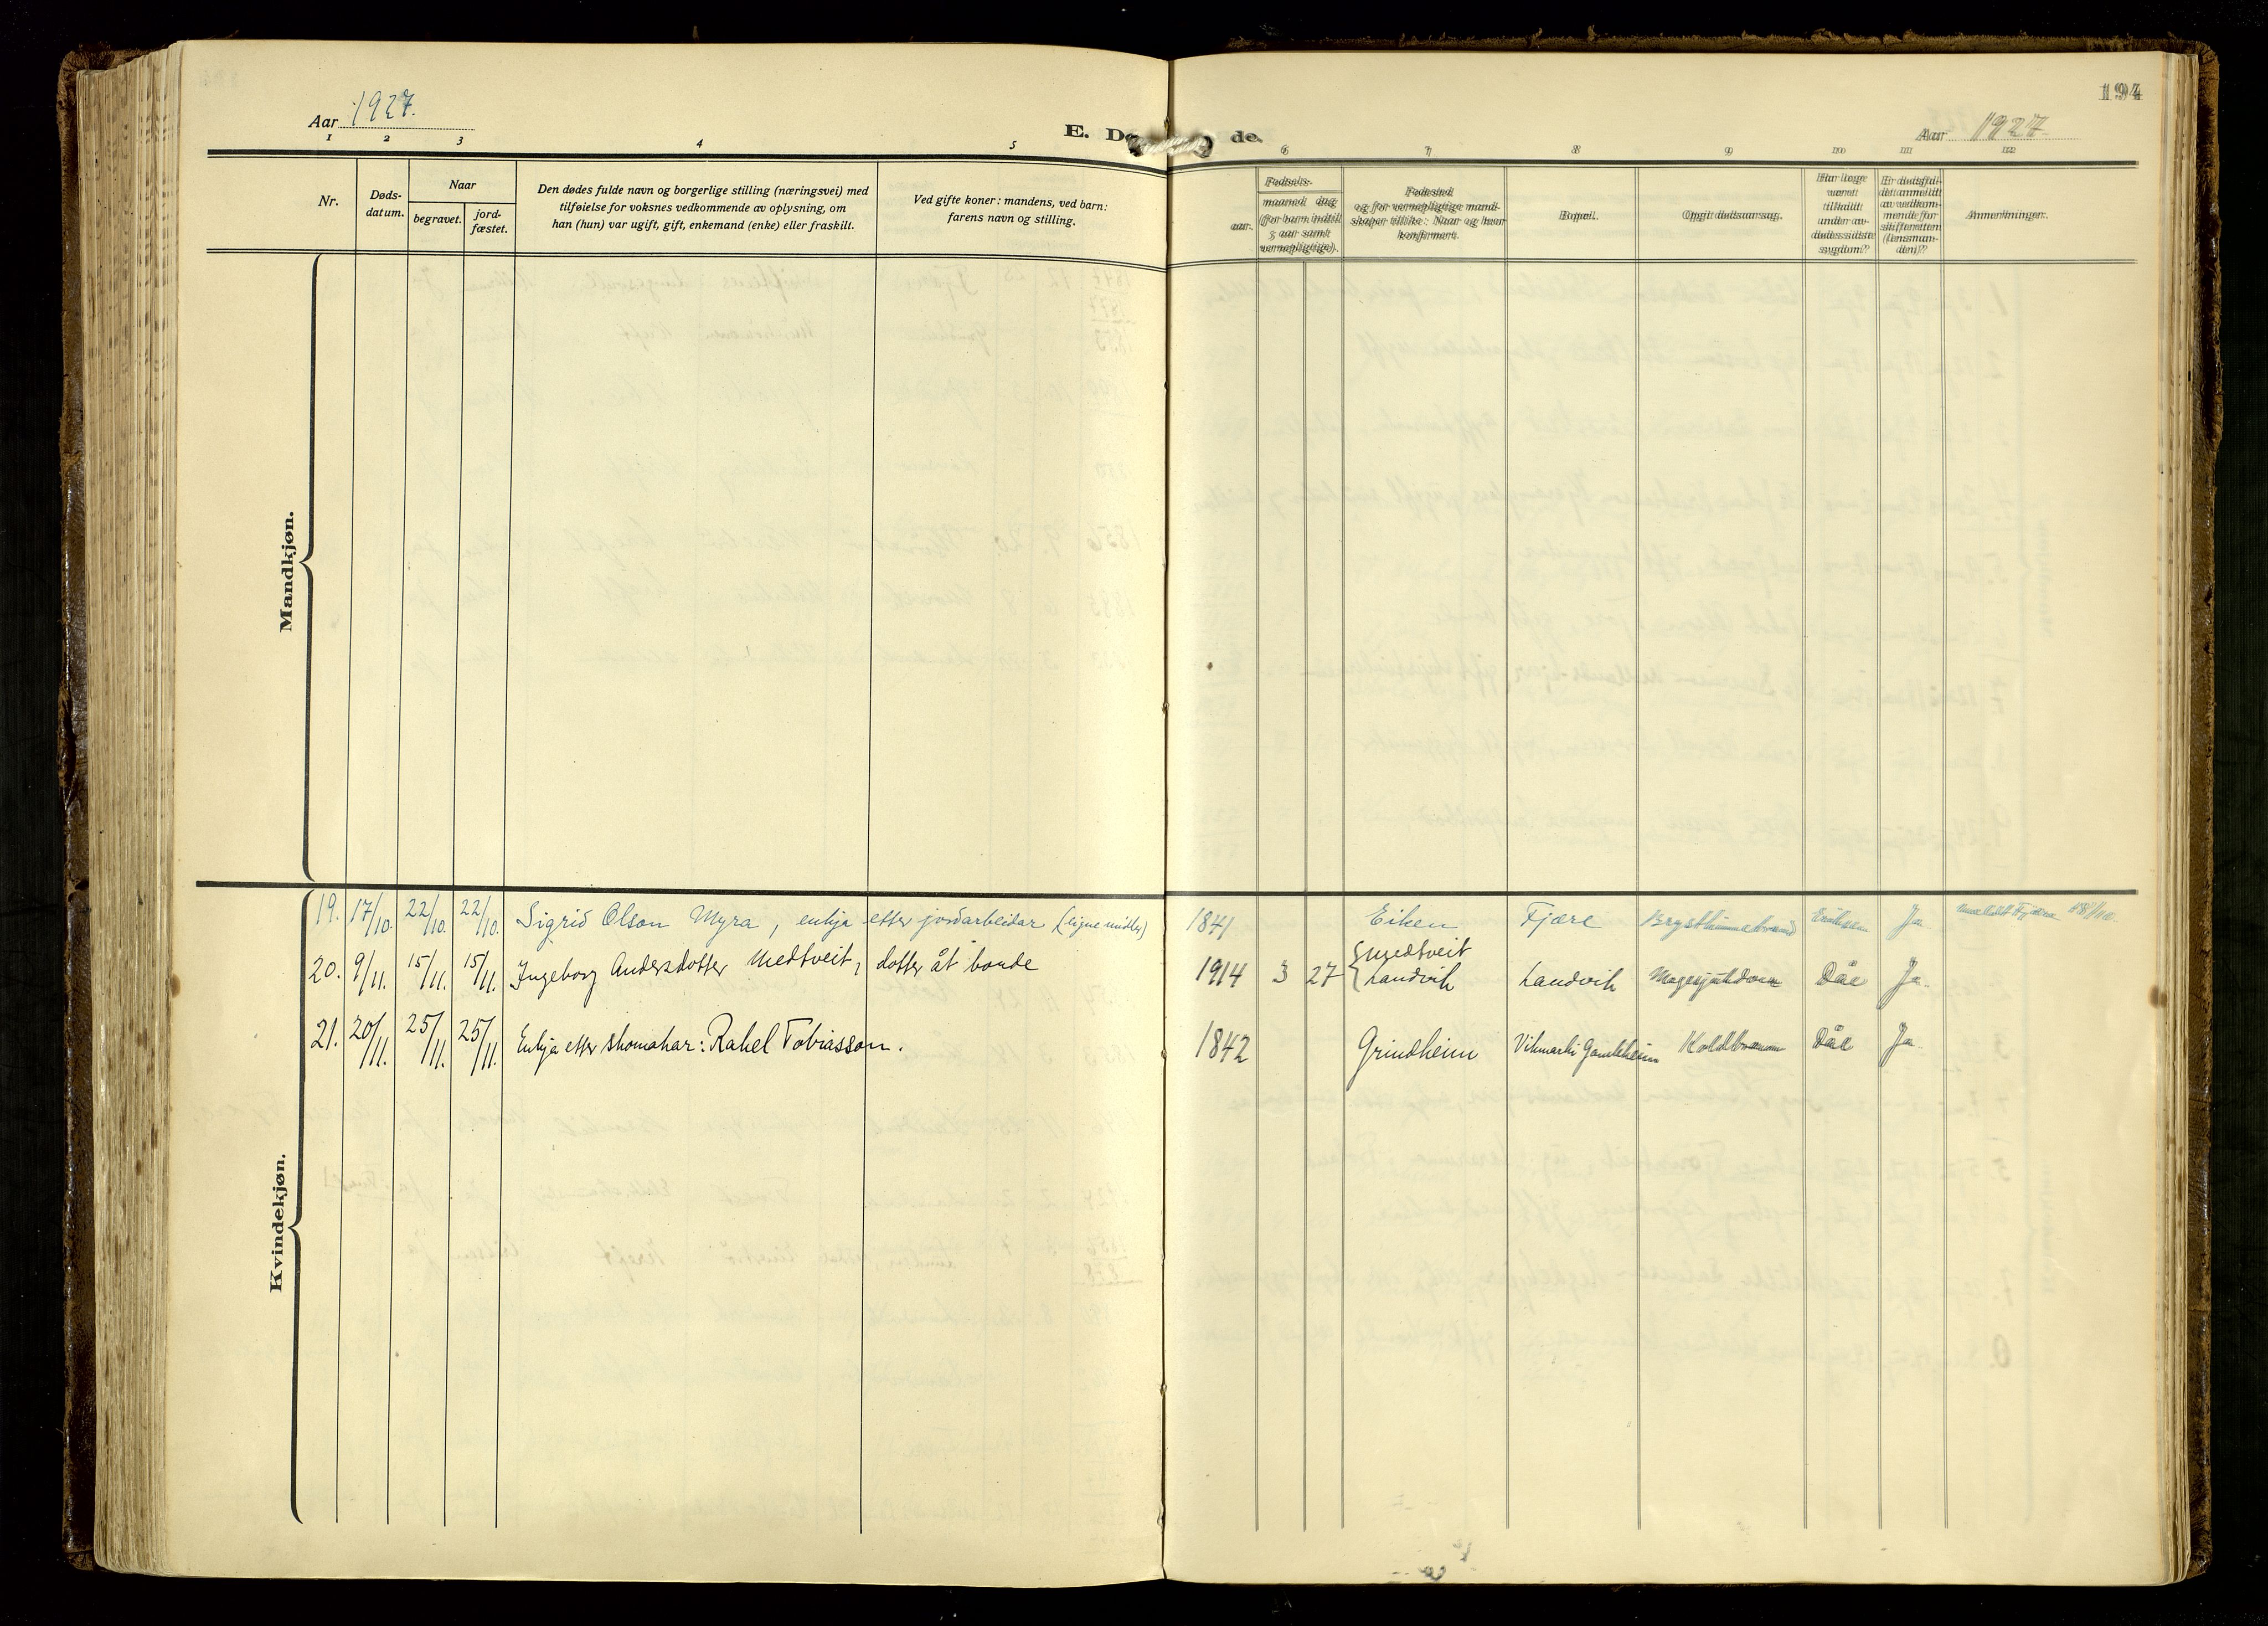 Aar 1927.
E. Dø de.
194
Aar 1927
1 2 3 4 5 6 7 8 9 10 11 12
Nr.
Døds-
datum.
Naar
begravet.
jord-
fæstet.
Den dødes fulde navn og borgerlige stilling (næringsvei) med
tilføielse for voksnes vedkommende av oplysning, om
han (hun) var ugift, gift, enkemand (enke) eller fraskilt.
Ved gifte koner: mandens, ved barn:
farens navn og stilling.
Fødsels-
aar.
maaned dag
(for barn indtil
5 aar samt
vernepligtige).
Fødested
og for vernepligtige mand-
skaper tillike: Naar og hvor
konfirmert.
Bopæl.
Opgit dødsaarsag.
Har læge
været
tilkaldt
under av-
dødes sidste
sygdom?
Er dødsfal-
det anmeldt
av vedkom-
mende for
skifteretten
(lensman-
den)?
Anmerkninger.
Mandkjøn.
Kvindekjøn.
19. 17/10. 22/10. 22/10. Sigrid Olson Myra, enkja etter jordarbeidar (eigne midler) 1841 Eiken Fjære Brysthinnebrand Eriksen Ja
20. 9/11. 15/11. 15/11. Ingeborg Andersdotter Medtveit, dotter åt bonde 1914 3 27 Medtveit
Landvik Landvik Magesjukdom Dåe Ja.
21. 20/11. 25/11. 25/11. Enkja etter skomakar: Rakel Tobiasson. 1842 Grindheim Vikmarki Gamleheim Koldbrann Dåe Ja.